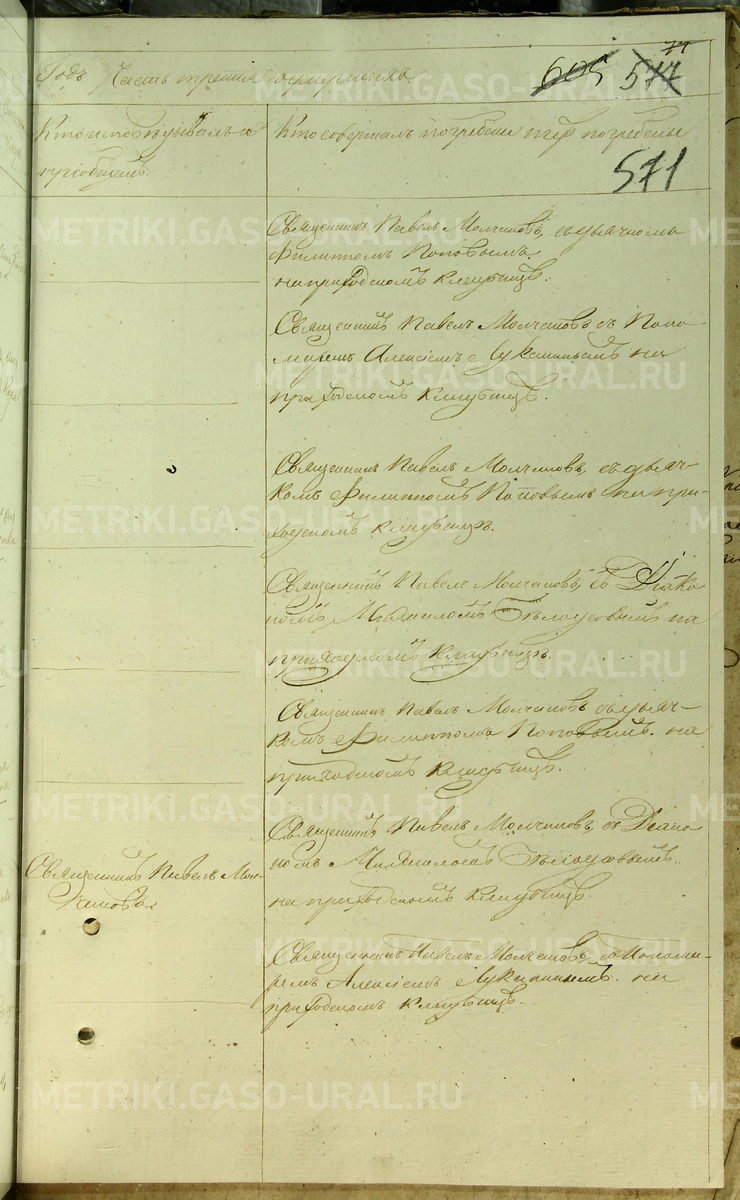 77
Годъ Часть третия о умершихъ
605 577
Кто исповѣдывалъ и
пріобщалъ.
Кто совершалъ погребеніе и гдѣ погребены
571
Священникъ Павелъ Молчановъ, съ дьячкомъ
Филиппомъ Поповымъ.
на приходскомъ кладбищѣ.
Священникъ Павелъ Молчановъ съ Поно-
маремъ Алексіемъ Лукининымъ на
приходскомъ кладбищѣ.
Священникъ Павелъ Молчановъ, съ дьяч-
комъ Филиппомъ Поповымъ на при-
ходскомъ кладбищѣ.
Священникъ Павелъ Молчановъ, съ Діако
номъ Михаиломъ Бѣлоусовымъ на
приходскомъ кладбищѣ.
Священникъ Павелъ Молчановъ съ дьяч-
комъ Филиппомъ Поповымъ. на
приходскомъ кладбищѣ.
Священникъ Павелъ Молчановъ, съ Діако
номъ Михаиломъ Бѣлоусовымъ.
на приходскомъ кладбищѣ.
Священникъ Павелъ Мол-
чановъ
Священникъ Павелъ Молчановъ, съ Понома-
ремъ Алексіемъ Лукининымъ. на
приходскомъ кладбищѣ.
METRIKI.GASO-URAL.RU